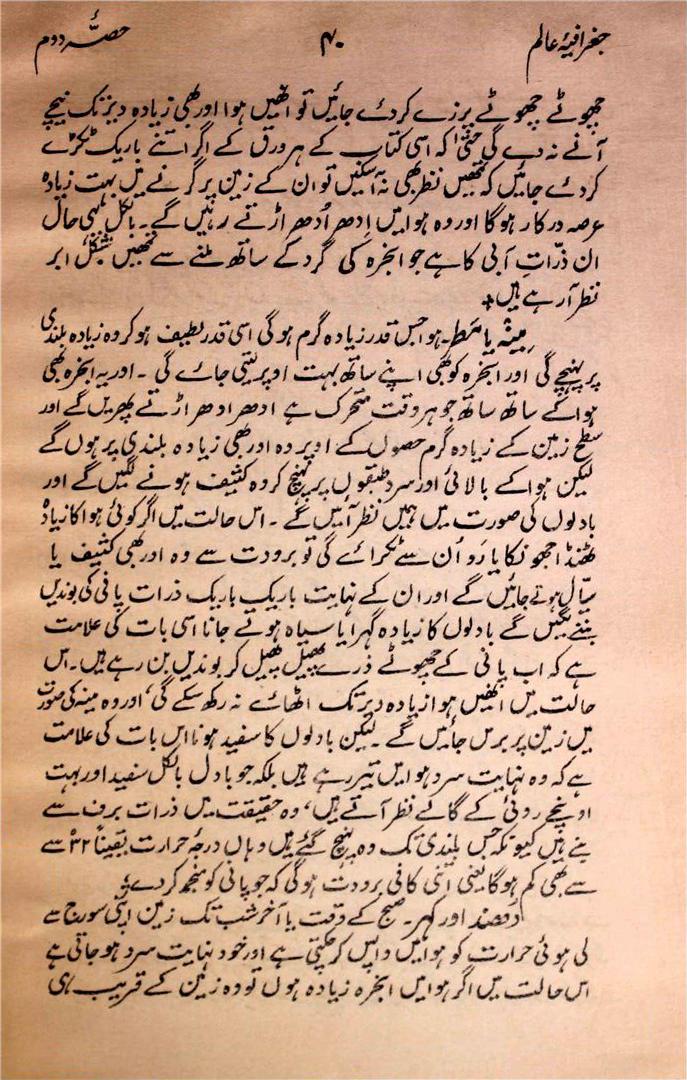 جغرافیۂ عالم ۴۰ حصّہ دوم
چھوٹے چھوٹے پرزے کردئے جائیں تو انھیں ہوا اور بھی زیادہ دیر تک نیچے
آنے نہ دے گی حتیٰ کہ اسی کتاب کے ہر ورق کے اگر اتنے باریک ٹکڑے
کردئے جائیں کہ تمھیں نظر بھی نہ آسکیں تو ان کے زمین پر گرنے میں بہت زیادہ
عرصہ درکار ہوگا اور وہ ہوا میں اِدھر اُدھر اڑتے رہیں گے۔ بالکل یہی حال
ان ذرّاتِ آبی کا ہے جو ابخرہ کی گرد کے ساتھ ملنے سے تمھیں بشکل ابر
نظر آرہے ہیں+
مینہ یا مطر۔ ہوا جس قدر زیادہ گرم ہوگی اسی قدر لطیف ہو کر وہ زیادہ بلندی
پر پہنچے گی اور ابخرہ کو بھی اپنے ساتھ بہت اوپر لیتی جائے گی ۔ اور یہ ابخرہ بھی
ہوا کے ساتھ ساتھ جو ہر وقت متحرک ہے ادھر ادھر اڑتے پھریں گے اور
سطح زمین کے زیادہ گرم حصوں کے اوپر وہ اور بھی زیادہ بلندی پر ہوں گے
لیکن ہوا کے بالائی اور سرد طبقوں پر پہنچ کر وہ کثیف ہونے لگیں گے اور
بادلوں کی صورت میں ہمیں نظر آئیں گے ۔ اس حالت میں اگر کوئی ہوا کا زیادہ
ٹھنڈا جھونکا یا رَو اُن سے ٹکرائے گی تو برودت سے وہ اور بھی کثیف یا
سیّال ہوتے جائیں گے اور ان کے نہایت باریک باریک ذرات پانی کی بوندیں
بننے لگیں گے بادلوں کا زیادہ گہرا یا سیاہ ہوتے جانا اسی بات کی علامت
ہے کہ اب پانی کے چھوٹے ذرے پھیل پھیل کر بوندیں بن رہے ہیں۔ اس
حالت میں انھیں ہوا زیادہ دیر تک اٹھائے نہ رکھ سکے گی، اور وہ مینہ کی صورت
میں زمین پر برس جائیں گے ۔ لیکن بادلوں کا سفید ہونا اس بات کی علامت
ہے کہ وہ نہایت سرد ہوا میں تیر رہے ہیں بلکہ جو بادل بالکل سفید اور بہت
اونچے روئی کے گالے نظر آتے ہیں، وہ حقیقت میں ذرات برف سے
بنے ہیں کیونکہ جس بلندی تک وہ پہنچ گئے ہیں وہاں درجۂ حرارت یقیناً ۳۲ سے
سے بھی کم ہوگا یعنی اتنی کافی برودت ہوگی کہ جو پانی کو منجمد کردے؛
دُھند اور کہر۔ صبح کے وقت یا آخر شب تک زمین اپنی سورج سے
لی ہوئی حرارت کو ہوا میں واپس کر چکتی ہے اور خود نہایت سرد ہو جاتی ہے
اس حالت میں اگر ہوا میں ابخرہ زیادہ ہوں تو وہ زمین کے قریب ہی